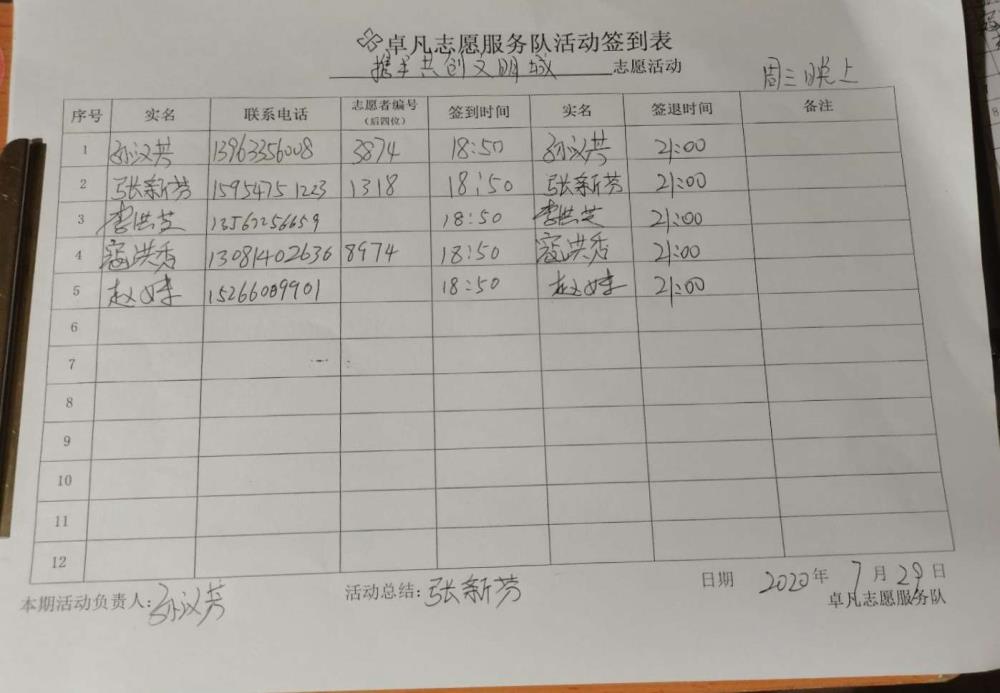 卓凡志愿服务队活动签到表
携手共创文明城 志愿活动 周三晚上
序号 实名 联系电话 志愿者编号（后四位） 签到时间 实名 签退时间 备注
1 孙汉芳 13963356008 3874 18:50 孙汉芳 21:00
2 张新芳 15954751223 1318 18:50 张新芳 21:00
3 李洪芝 13563256659 18:50 李洪芝 21:00
4 寇洪香 13081402636 8974 18:50 寇洪香 21:00
5 赵 15266089901 18:50 赵 21:00
6
7
8
9
10
11
12
本期活动负责人:孙汉芳 活动总结:张新芳 日期 2020年7月29日
卓凡志愿服务队